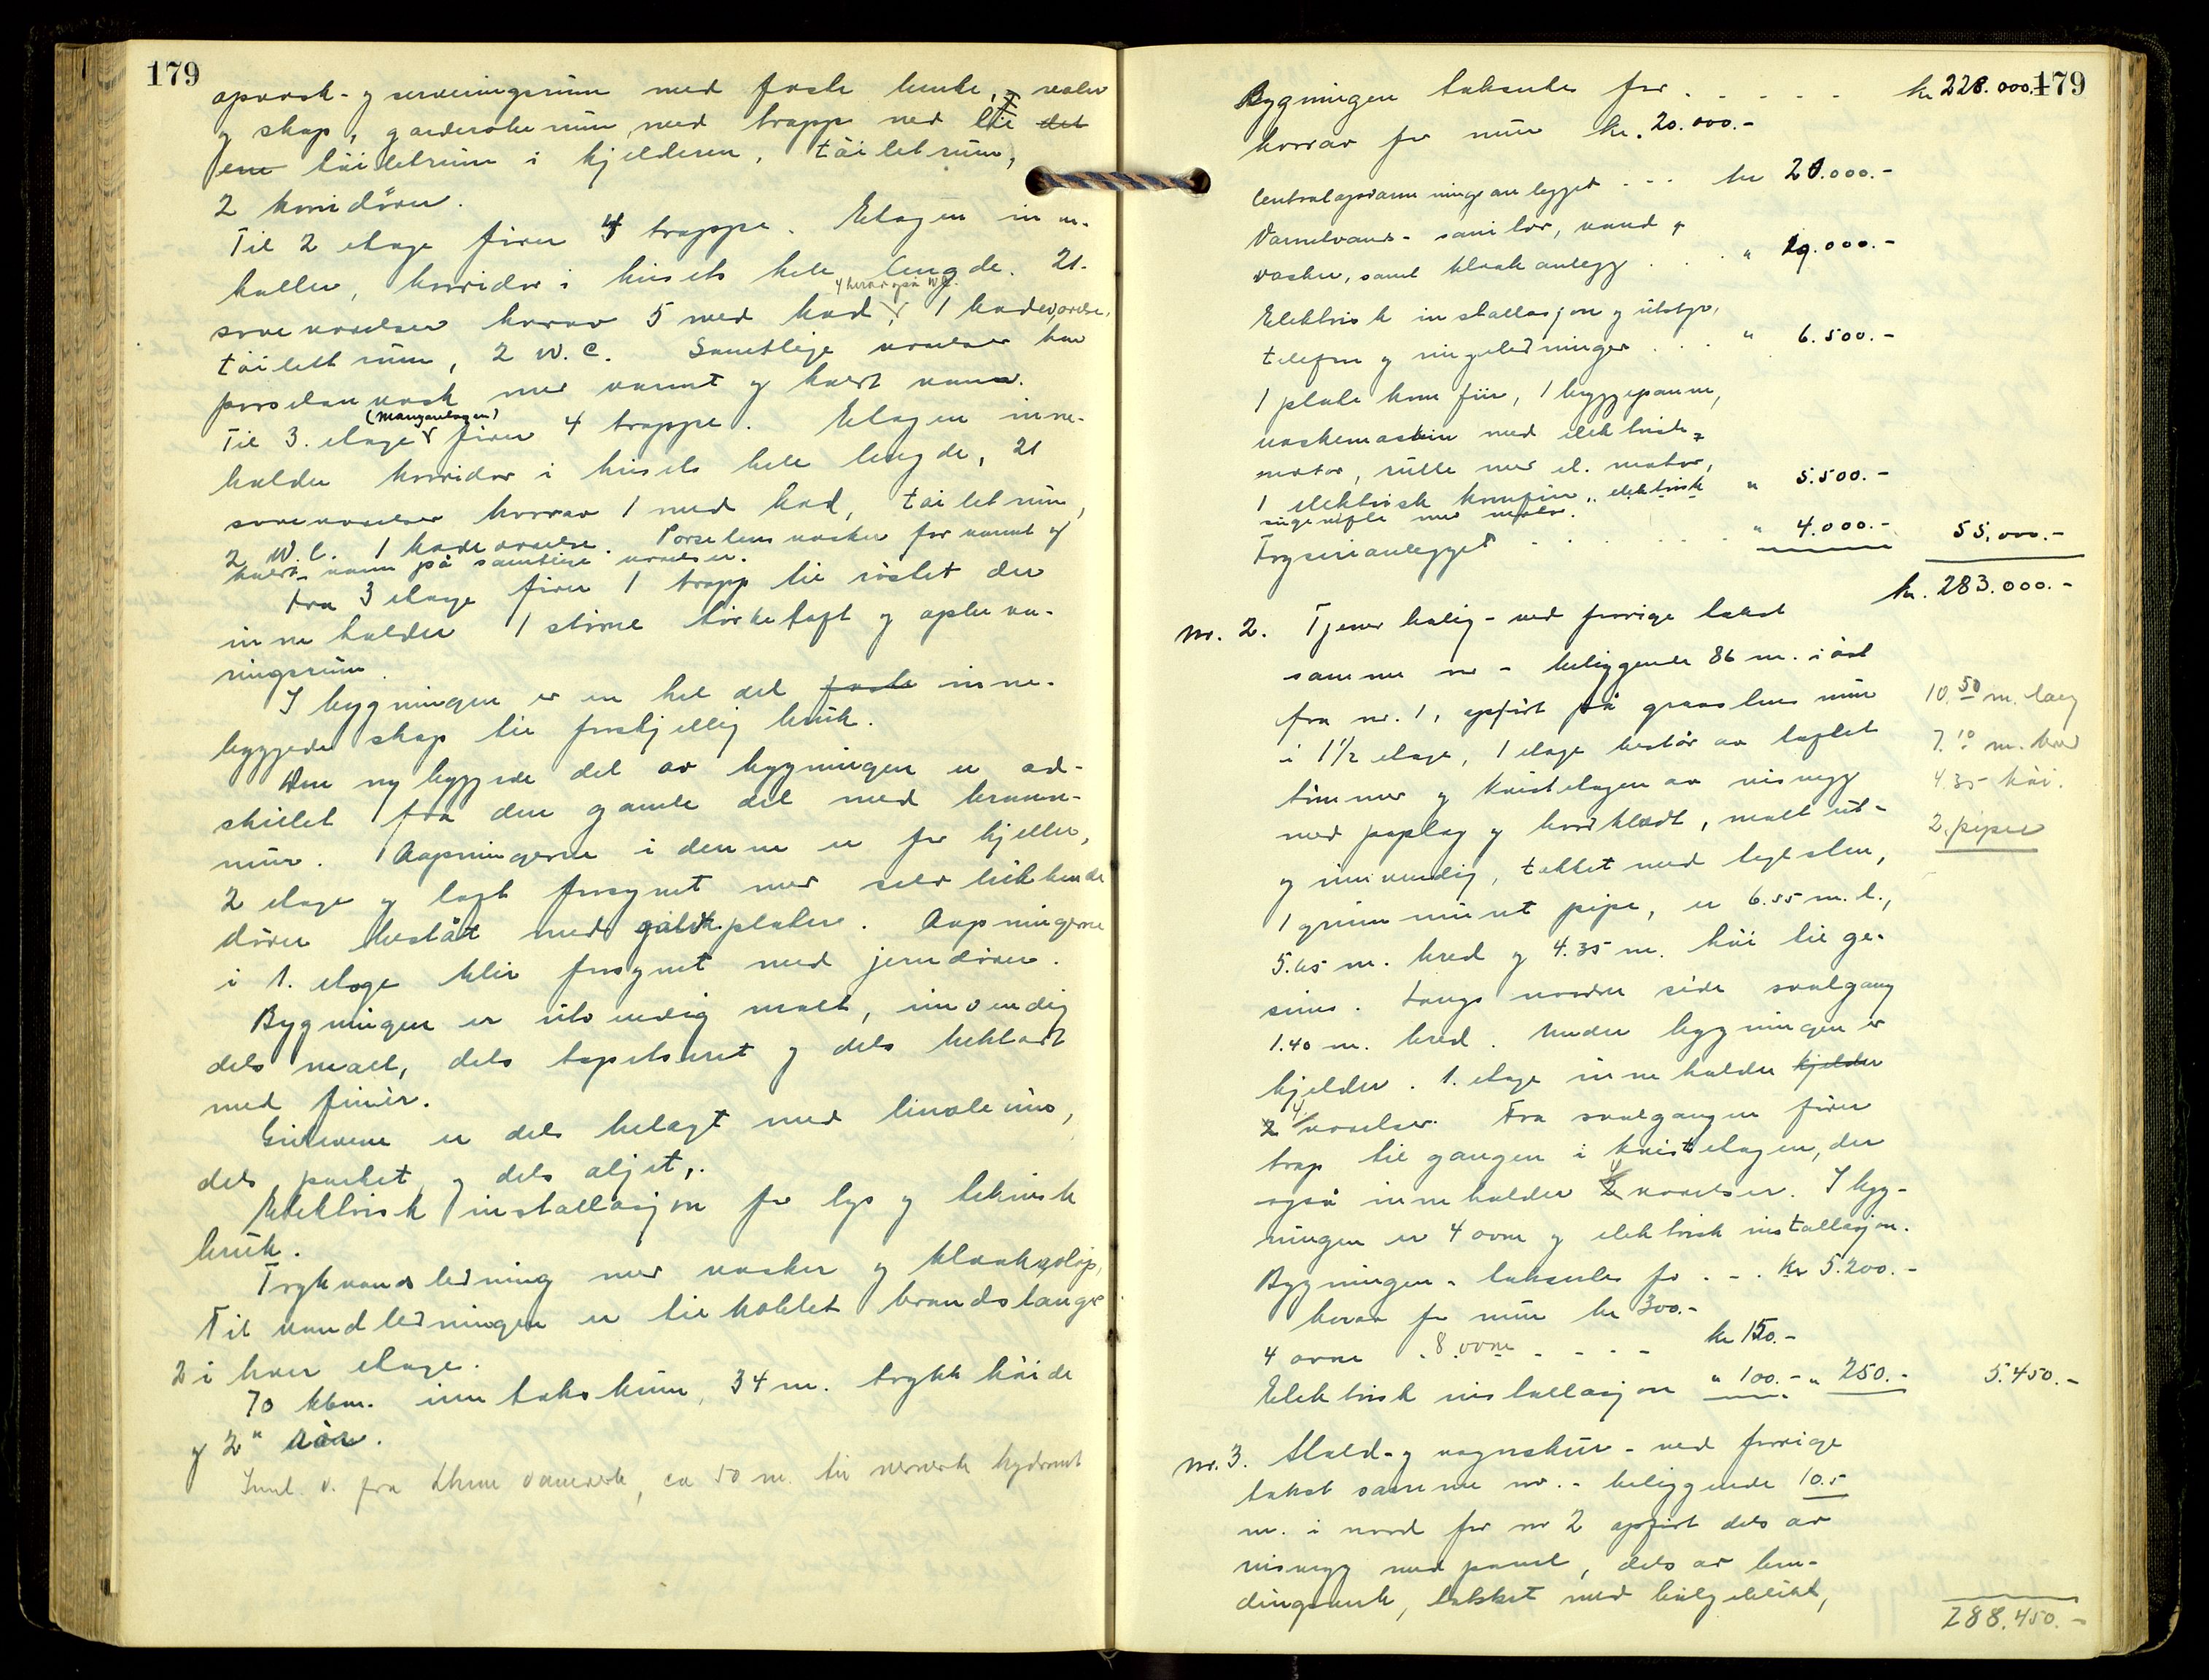 179
opvask- og serveringsrum med faste benke, og reoler
og skap, garderoberum, med trapp ned til det
ene tòiletrum i kjelderen, tòiletrum,
2 korridörer.
Til 2 etage förer 4 trapper. Etagen inne-
holder, korridor i husets hele lengde. 21.
4 herav også W.C.
soveværelser hvorav 5 med bad, 1 badeværelse,
tòilettrum, 2 W.C. Samtlige værelser har
porselanvask med varmt og koldt vann.
(Mansardetagen)
Til 3. etage förer 4 trapper. Etagen inne-
holder korridor i husets hele lengde, 21
soveværelser hvorav 1 med bad, tòiletrum,
2 W.C. 1 badeværelse. Porselensvasker for varmt og
koldt vann på samtlige værelser.
Fra 3 etage förer 1 trapp til röstet der
inneholder 1 större törkeloft og opbeva-
ringsrum.
I bygningen er en hel del faste inne-
byggede skap til forskjellig bruk.
Den nybyggede del av bygningen er ad-
skillet fra den gamle del med brann-
mur. Aapningerne i denne er for kjeller,
2 etage og loft forsynet med selvlukkende
dörer beslåt med galv. plater. Aapningerne
i 1. etage blir forsynet med jerndörer.
Bygningen er utvendig malt, innvendig
dels malt, dels tapetseret og dels beklædt
med finèr.
Gulvene er dels belagt med linoleum,
dels parket og dels oljet.
Elektrisk installasjon for lys og teknisk
bruk.
Trykvandsledning med vasker og kloakavløp.
Til vandledningen er tilkoblet brandslange
2 i hver etage.
70 kbm. inntakskum, 34 m. trykkhöide
og 2" rör.
Innl. v. fra vannverk, ca 50 m. til nærmeste hydrant
179
Bygningen takseres for . . . . . kr 228.000.-
hvorav for mur kr. 20.000.-
Centralopvarmningsanlegget . . . kr 20.000.-
Varmtvands- sanitær, vand og
vasker, samt kloakanlegg . . . " 19.000.-
Elektrisk installasjon og utstyr,
telefon og ringeledninger . . . " 6.500.-
1 plate komfür, 1 bryggepanne,
vaskemaskin med elektrisk
motor, rulle med el. motor,
1 elektrisk komfür, elektrisk " 5.500.-
sugevifte med motor.
Fryserianlegget . . . . . . " 4.000.- 55.000.-
kr. 283.000.-
Nr. 2. Tjenerbolig - ved forrige takst
samme nr - beliggende 86 m. i öst
fra nr. 1, opfört på graastens mur
i 1 1/2 etage, 1 etage består av laftet
tömmer og kvistetagen av reisverg
med paplag og bordklædt, malt ut-
og innvendig, tekket med teglsten,
1 grunnmuret pipe, er 6.55 m. l.,
5.65 m. bred og 4.35 m. höi til ge-
sims. Langs nordre side svalgang
1.40 m. bred. Under bygningen er
kjelder. 1. etage inneholder kjelder
4 værelser. Fra svalgangen förer
trap til gangen i kvistetagen, der
også inneholder 4 værelser. I byg-
ningen er 4 ovne og elektrisk installasjon.
10.50 m. lang
7.10 m. bred
4.35 höi.
2 piper
Bygningen takseres for . . . kr 5.200.-
herav for mur kr 300.-
4 ovne . 8 ovne . . . . kr 150.-
Elektrisk installasjon " 100.- " 250.- 5.450.-
Nr. 3. Stald- og vognskur - ved forrige
takst samme nr. - beliggende 10.5
m. i nord for nr 2 opfört dels av
reisverg med panel, dels av bin-
dingsverk, tekket med bølgeblikk,
288.450.-